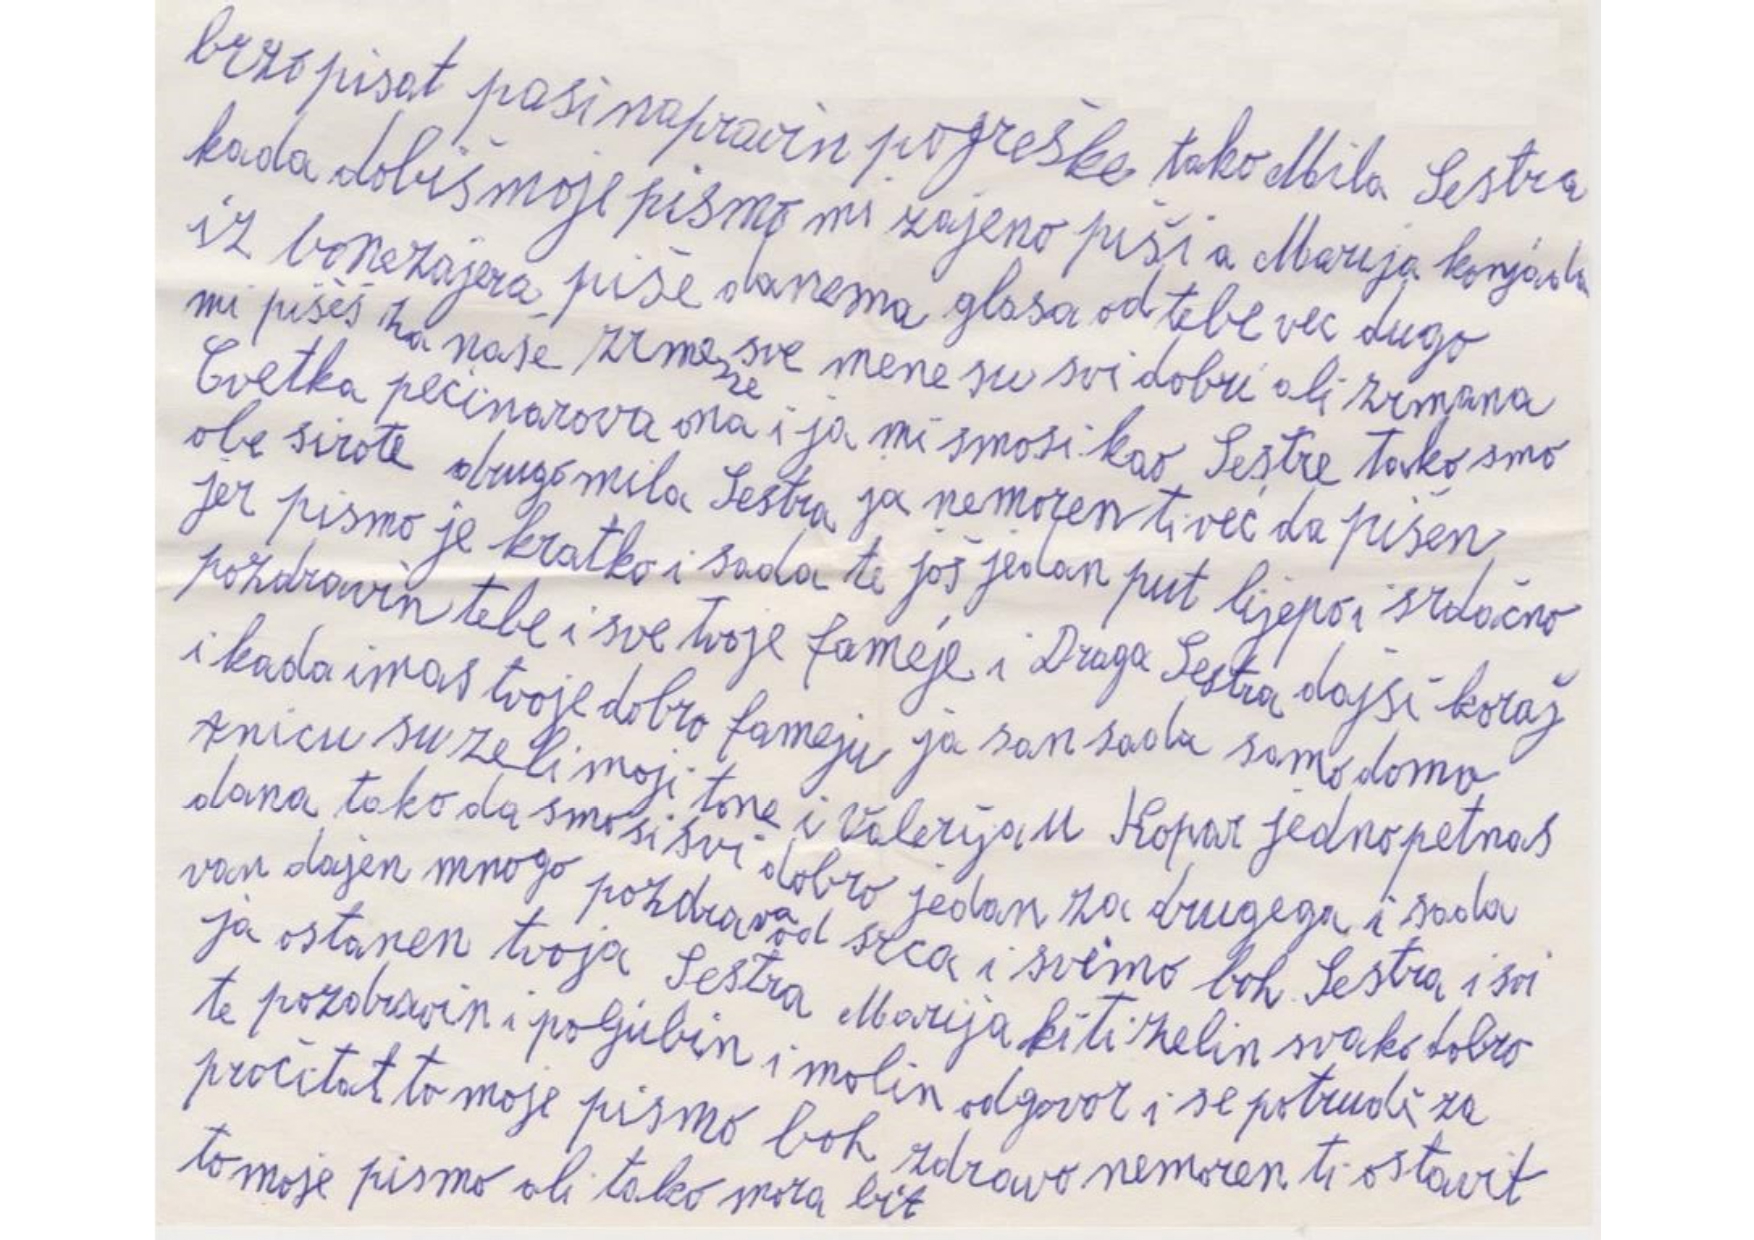 brzo pisat pasi napravin pogreške tako Mila Sestra
kada dobiš moje pismo mi zajeno piši a Marija konja da
iz bonezajera piše da nema glasa od tebe vec dugo
mi pišeš za naše zrmane sve mene su svi dobri ali zrmana
Cvetka pecinarova ona i ja mi smo si kao Sestre tako smo
obe sirote drugo mila Sestra ja nemoren ti več da pišen
jer pismo je kratko i sada te još jedan put lijepo i srdačno
pozdravin tebe i sve tvoje fameje i Draga Sestra daj si koraj
i kada imas tvoje dobro fameju ja san sada samo doma
znicu su zeli moji tone i Valerija u Kopar jedno petnas
dana tako da smo si svi dobro jedan za drugega i sada
van dajen mnogo pozdrava od srca i svimo boh Sestra i svi
ja ostanen tvoja Sestra Marija ki ti zelin svako dobro
te pozdravin i poljubin i molin odgovor i se potrudi za
pročitat to moje pismo boh zdravo nemoren ti ostavit
to moje pismo ali tako mora bit